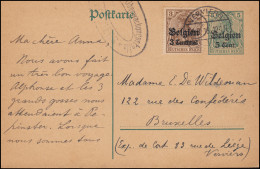 Postkarte
Belgien
3 Centimes
Belgien
5 Cent.
VERVIERS
Ma chère Anna,
Nous avons fait
un très bon voyage
Alphonse et les 3
grands gosses nous
attendaient à Pe-
pinster. Lorsque
nous sommes
Madame E. De Wildeman
122, rue des Confédérés
Bruxelles
(Exp. de Cort. 83 rue de Liège
Verviers)